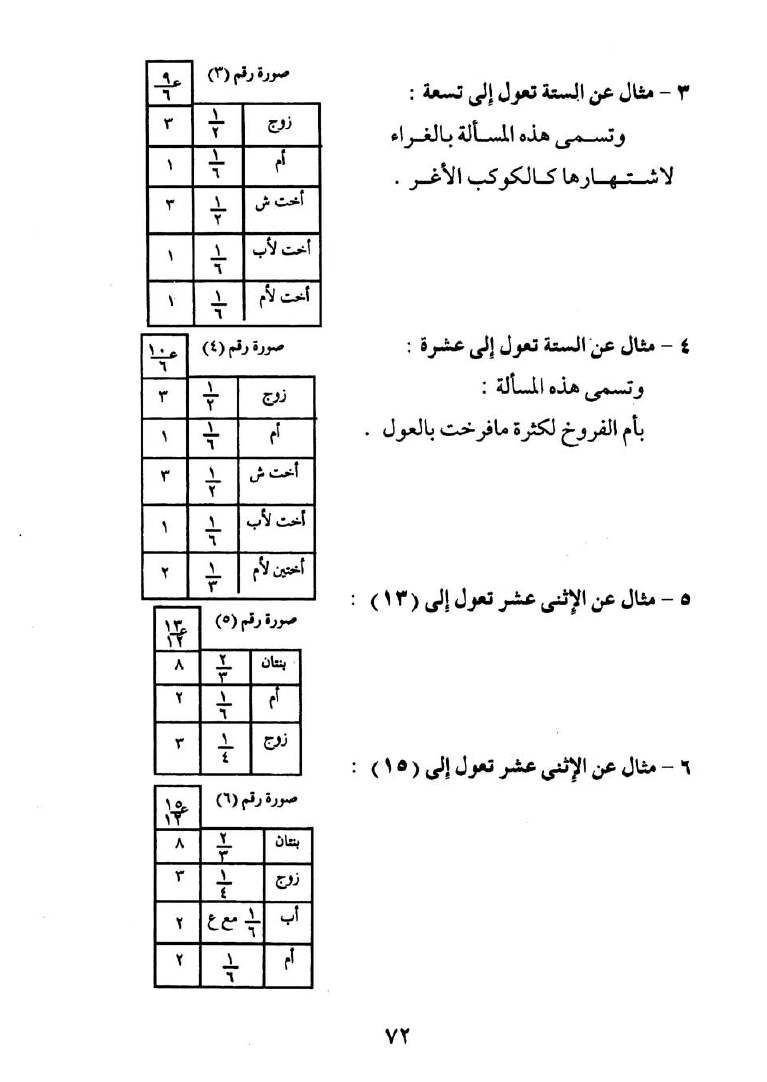 ٣ - مثال عن الستة تعول إلى تسعة :
وتسمى هذه المسألة بالغراء
لاشتهارها كالكوكب الأغر .
صورة رقم (٣)
ع ٩/٦
زوج ١/٢ ٣
أم ١/٦ ١
أخت ش ١/٢ ٣
أخت لأب ١/٦ ١
أخت لأم ١/٦ ١
٤ - مثال عن الستة تعول إلى عشرة :
وتسمى هذه المسألة :
بأم الفروخ لكثرة مافرخت بالعول .
صورة رقم (٤)
ع ١٠/٦
زوج ١/٢ ٣
أم ١/٦ ١
أخت ش ١/٢ ٣
أخت لأب ١/٦ ١
أختين لأم ١/٣ ٢
٥ - مثال عن الإثنى عشر تعول إلى (١٣) :
صورة رقم (٥)
ع ١٣/١٢
بنتان ٢/٣ ٨
أم ١/٦ ٢
زوج ١/٤ ٣
٦ - مثال عن الإثنى عشر تعول إلى (١٥) :
صورة رقم (٦)
ع ١٥/١٢
بنتان ٢/٣ ٨
زوج ١/٤ ٣
أب ١/٦ مع ع ٢
أم ١/٦ ٢
٧٢